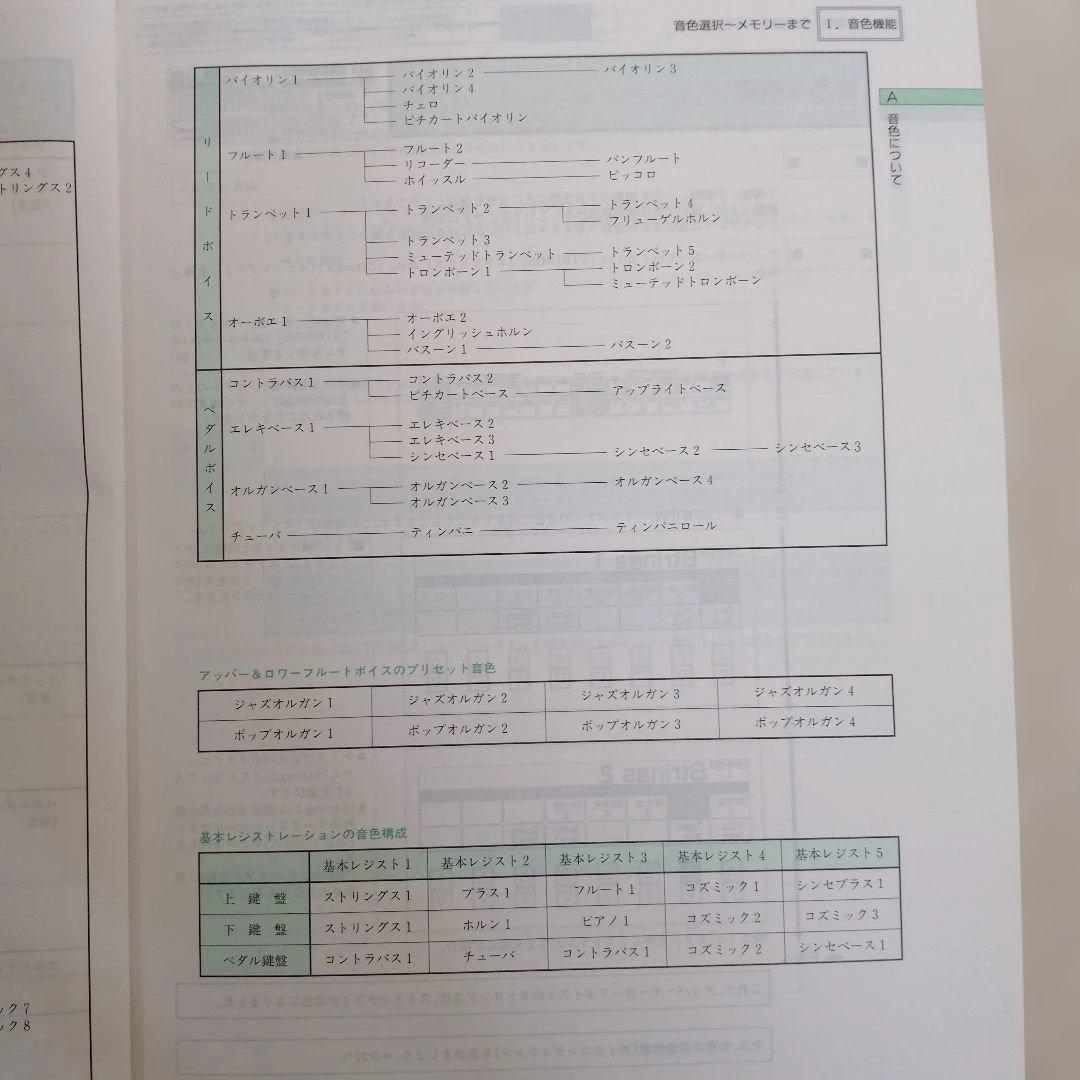 音色選択～メモリーまで Ⅰ．音色機能
A
音色について
グス4
トリングス2
ック7
ック8
リードボイス
バイオリン1 バイオリン2 バイオリン3
バイオリン4
チェロ
ピチカートバイオリン
フルート1 フルート2
リコーダー パンフルート
ホイッスル ピッコロ
トランペット1 トランペット2 トランペット4
フリューゲルホルン
トランペット3
ミューテッドトランペット トランペット5
トロンボーン1 トロンボーン2
ミューテッドトロンボーン
オーボエ1 オーボエ2
イングリッシュホルン
バスーン1 バスーン2
ペダルボイス
コントラバス1 コントラバス2
ピチカートベース アップライトベース
エレキベース1 エレキベース2
エレキベース3
シンセベース1 シンセベース2 シンセベース3
オルガンベース1 オルガンベース2 オルガンベース4
オルガンベース3
チューバ ティンパニ ティンパニロール
アッパー＆ロワーフルートボイスのプリセット音色
ジャズオルガン1 ジャズオルガン2 ジャズオルガン3 ジャズオルガン4
ポップオルガン1 ポップオルガン2 ポップオルガン3 ポップオルガン4
基本レジストレーションの音色構成
基本レジスト1 基本レジスト2 基本レジスト3 基本レジスト4 基本レジスト5
上鍵盤 ストリングス1 ブラス1 フルート1 コズミック1 シンセブラス1
下鍵盤 ストリングス1 ホルン1 ピアノ1 コズミック2 コズミック3
ペダル鍵盤 コントラバス1 チューバ コントラバス1 コズミック2 シンセベース1